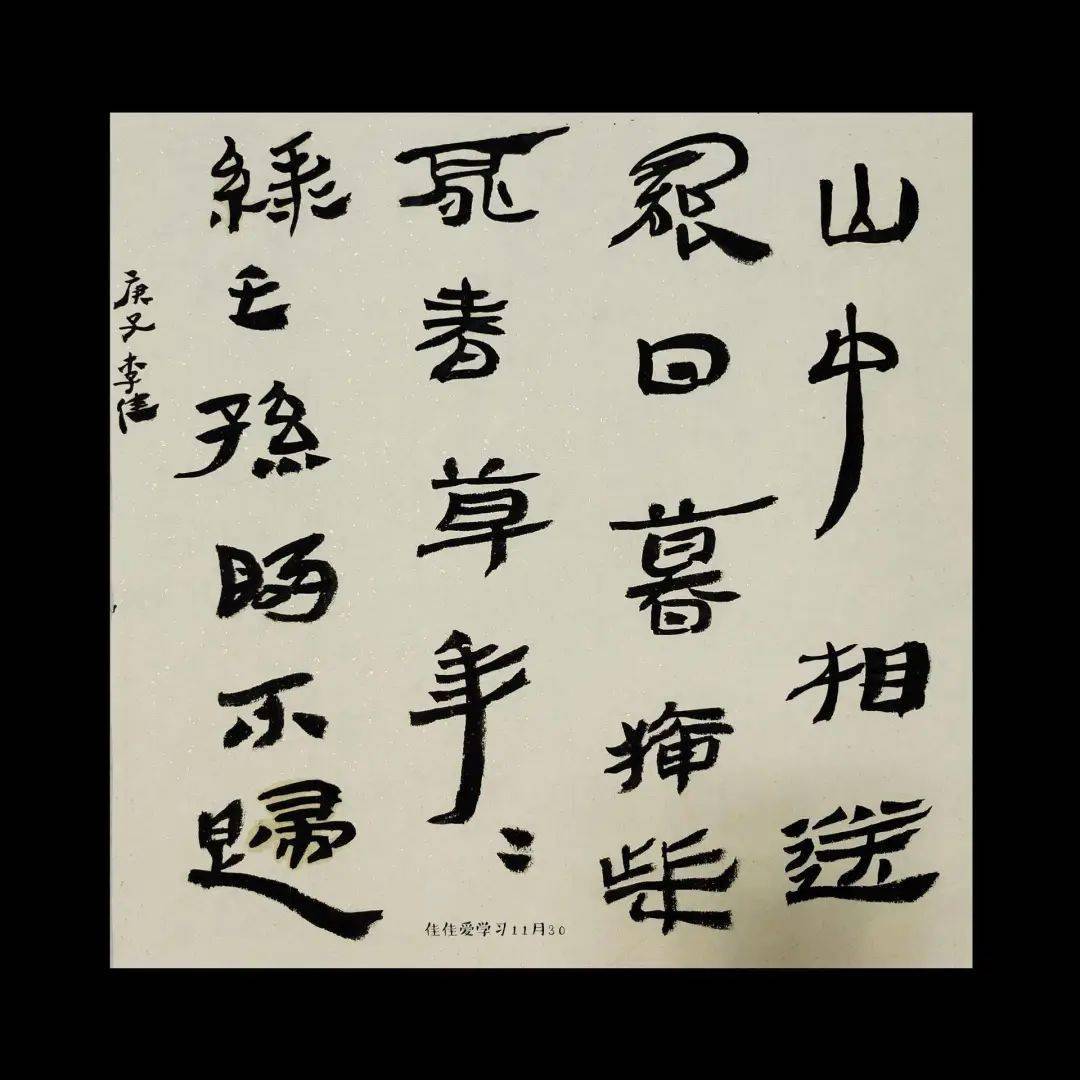 山中相送
罷日暮掩柴
扉春草年〻
綠王孫不歸
庚子李佳
佳佳爱学习11月30